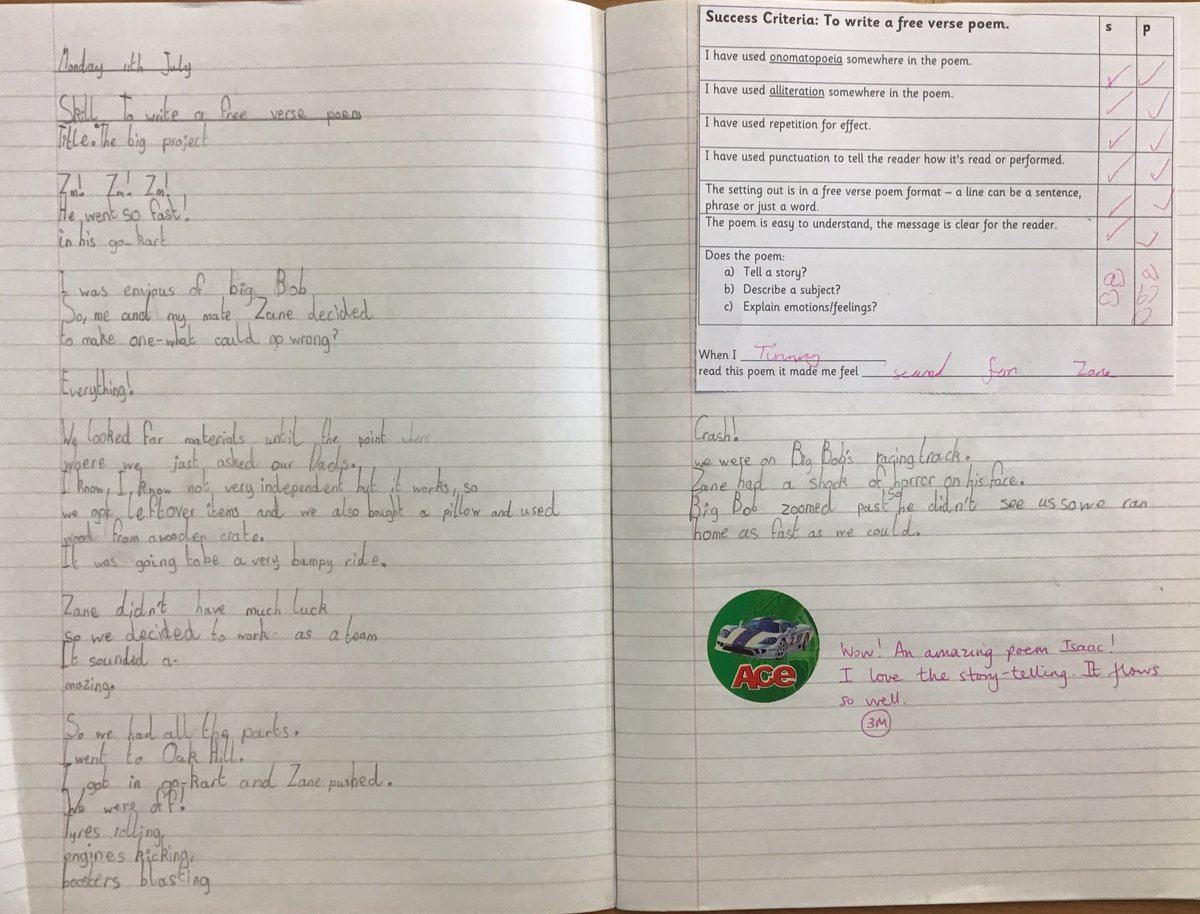 Monday 11th July
Skill To write a free verse poem
Title: The big project
Zm! Zm! Zm!
He went so fast!
in his go-kart
I was envious of big Bob
So, me and my mate Zane decided
to make one-what could go wrong?
Everything!
We looked for materials until the point where
where we just asked our Dads.
I know, I, know not very independent but it works, so
we got leftover items and we also bought a pillow and used
wood from a wooden crate.
It was going to be a very bumpy ride.
Zane didn't have much luck
so we decided to work as a team
It sounded a-
mazing.
So we had all the parts.
I went to Oak Hill.
I got in go-kart and Zane pushed.
We were off!
Tyres rolling,
engines kicking,
boosters blasting
Success Criteria: To write a free verse poem. s p
I have used onomatopoeia somewhere in the poem.
I have used alliteration somewhere in the poem.
I have used repetition for effect.
I have used punctuation to tell the reader how it's read or performed.
The setting out is in a free verse poem format – a line can be a sentence,
phrase or just a word.
The poem is easy to understand, the message is clear for the reader.
Does the poem:
a) Tell a story? a) a)
b) Describe a subject? c) b)
c) Explain emotions/feelings?
When I
read this poem it made me feel scared for Zane
Crash!
we were on Big Bob's racing track.
Zane had a shock of horror on his face.
Big Bob zoomed past so he didn't see us so we ran
home as fast as we could.
ACE
Wow! An amazing poem Isaac!
I love the story-telling. It flows
so well.
3M